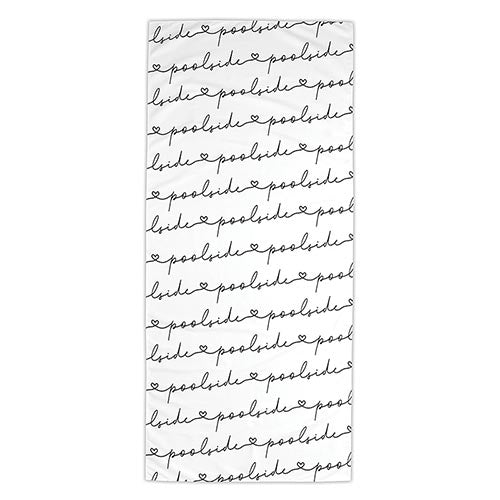 lside poolside
poolside poolside
lside poolside
poolside poolside
lside poolside
poolside poolside
lside poolside
poolside poolside
lside poolside
poolside poolside
lside poolside
poolside poolside
lside poolside
poolside poolside
lside poolside